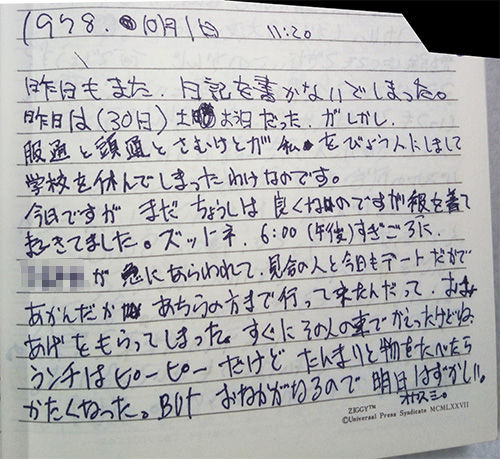 1978. 10月1日 11:20
昨日もまた、日記を書かないでしまった。
昨日は(30日) 土 お泊だった。がしかし、
服通と頭通とさむけとが 私 をびょう人にしまして
学校を休んでしまったわけなのです。
今日ですが まだ ちょうしは 良くないのですが 服を着て
起きてました。ズットネ、6:00 (午後)すぎごろに、
が 急にあらわれて、見合の人と今日もデートだかで
あかんだか あちらの方まで行って来たんだって、おみ
あげをもらってしまった。すぐにその人の車でかえったけどね。
ウンチはピーピーだけど たんまりと物をたべたら
かたくなった。BUT おなかがなるので 明日はずかしい。
オヤスミ。
ZIGGY™
©Universal Press Syndicate MCMLXXVII